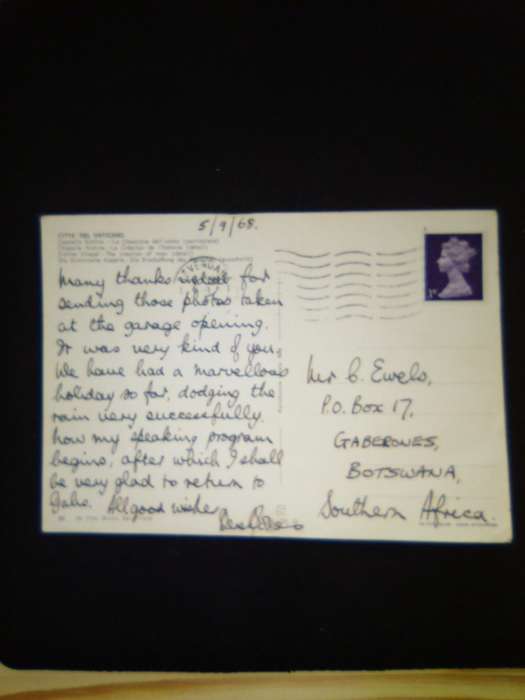 5/9/68.
CITTÀ DEL VATICANO
Many thanks indeed for
sending those photos taken
at the garage opening.
It was very kind of you.
We have had a marvellous
holiday so far, dodging the
rain very successfully.
Now my speaking program
begins, after which I shall
be very glad to return to
Gabs. All good wishes
Mr C. Ewels,
P.O. Box 17,
GABERONES,
BOTSWANA,
Southern Africa.